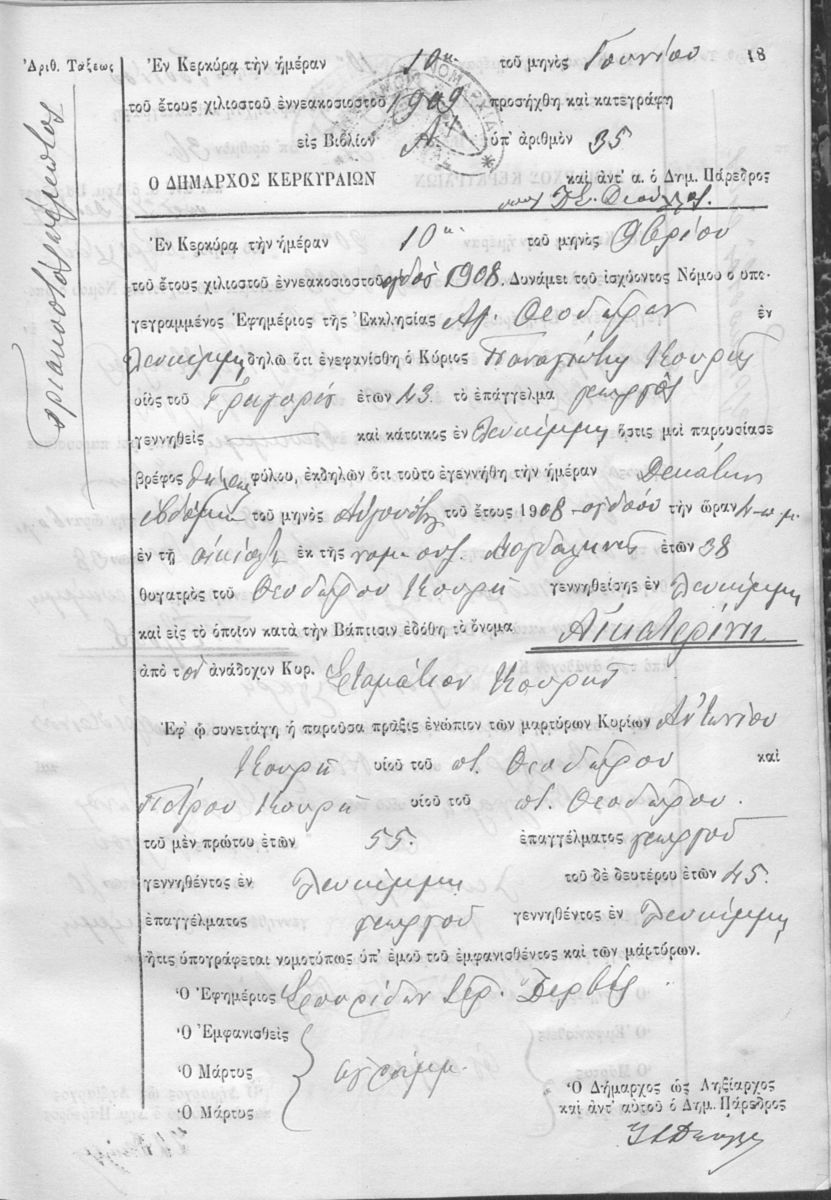 18
Ἀριθ. Τάξεως
τριακοστὸν πέμπτον
Ἐν Κερκύρᾳ τὴν ἡμέραν 10ην τοῦ μηνὸς Ἰουνίου
τοῦ ἔτους χιλιοστοῦ ἐννεακοσιοστοῦ 1909 προσήχθη καὶ κατεγράφη
εἰς Βιβλίον Α ὑπ' ἀριθμὸν 35
Ὁ ΔΗΜΑΡΧΟΣ ΚΕΡΚΥΡΑΙΩΝ καὶ ἀντ' α. ὁ Δημ. Πάρεδρος
Ἐν Κερκύρᾳ τὴν ἡμέραν 10ην τοῦ μηνὸς 9βρίου
τοῦ ἔτους χιλιοστοῦ ἐννεακοσιοστοῦ ὀγδόου 1908. Δυνάμει τοῦ ἰσχύοντος Νόμου ὁ ὑπο-
γεγραμμένος Ἐφημέριος τῆς Ἐκκλησίας Ἁγ. Θεοδώρων ἐν
Λευκίμμῃ δηλῶ ὅτι ἐνεφανίσθη ὁ Κύριος Παναγιώτης Κουρῆς
υἱὸς τοῦ Γρηγορίου ἐτῶν 43. τὸ ἐπάγγελμα γεωργὸς
γεννηθεὶς καὶ κάτοικος ἐν Λευκίμμῃ ὅστις μοὶ παρουσίασε
βρέφος θήλεος φύλου, ἐκδηλῶν ὅτι τοῦτο ἐγεννήθη τὴν ἡμέραν Δεκάτην
ἑβδόμην τοῦ μηνὸς Αὐγούστου τοῦ ἔτους 1908 - ὀγδόου τὴν ὥραν 4 - π. μ.
ἐν τῇ οἰκίᾳ ἐκ τῆς νομ. συζ. Μαγδαληνῆς ἐτῶν 38
θυγατρὸς τοῦ Θεοδώρου Κουρῆ γεννηθείσης ἐν Λευκίμμῃ
καὶ εἰς τὸ ὁποῖον κατὰ τὴν Βάπτισιν ἐδόθη τὸ ὄνομα Αἰκατερίνη
ἀπὸ τὸν ἀνάδοχον Κυρ. Σταμάτιον Κουρῆν
Ἐφ' ᾧ συνετάγη ἡ παροῦσα πρᾶξις ἐνώπιον τῶν μαρτύρων Κυρίων Ἀντωνίου
Κουρῆ υἱοῦ τοῦ π. Θεοδώρου καὶ
Πέτρου Κουρῆ υἱοῦ τοῦ π. Θεοδώρου.
τοῦ μὲν πρώτου ἐτῶν 55. ἐπαγγέλματος γεωργοῦ
γεννηθέντος ἐν Λευκίμμῃ τοῦ δὲ δευτέρου ἐτῶν 45.
ἐπαγγέλματος γεωργοῦ γεννηθέντος ἐν Λευκίμμῃ
ἥτις ὑπογράφεται νομοτύπως ὑπ' ἐμοῦ τοῦ ἐμφανισθέντος καὶ τῶν μαρτύρων.
Ὁ Ἐφημέριος Σπυρίδων Ἱερ. Δερβὸς
Ὁ Ἐμφανισθεὶς
Ὁ Μάρτυς ἀγράμμ.
Ὁ Μάρτυς
Ὁ Δήμαρχος ὡς Ληξίαρχος
καὶ ἀντ' αὐτοῦ ὁ Δημ. Πάρεδρος